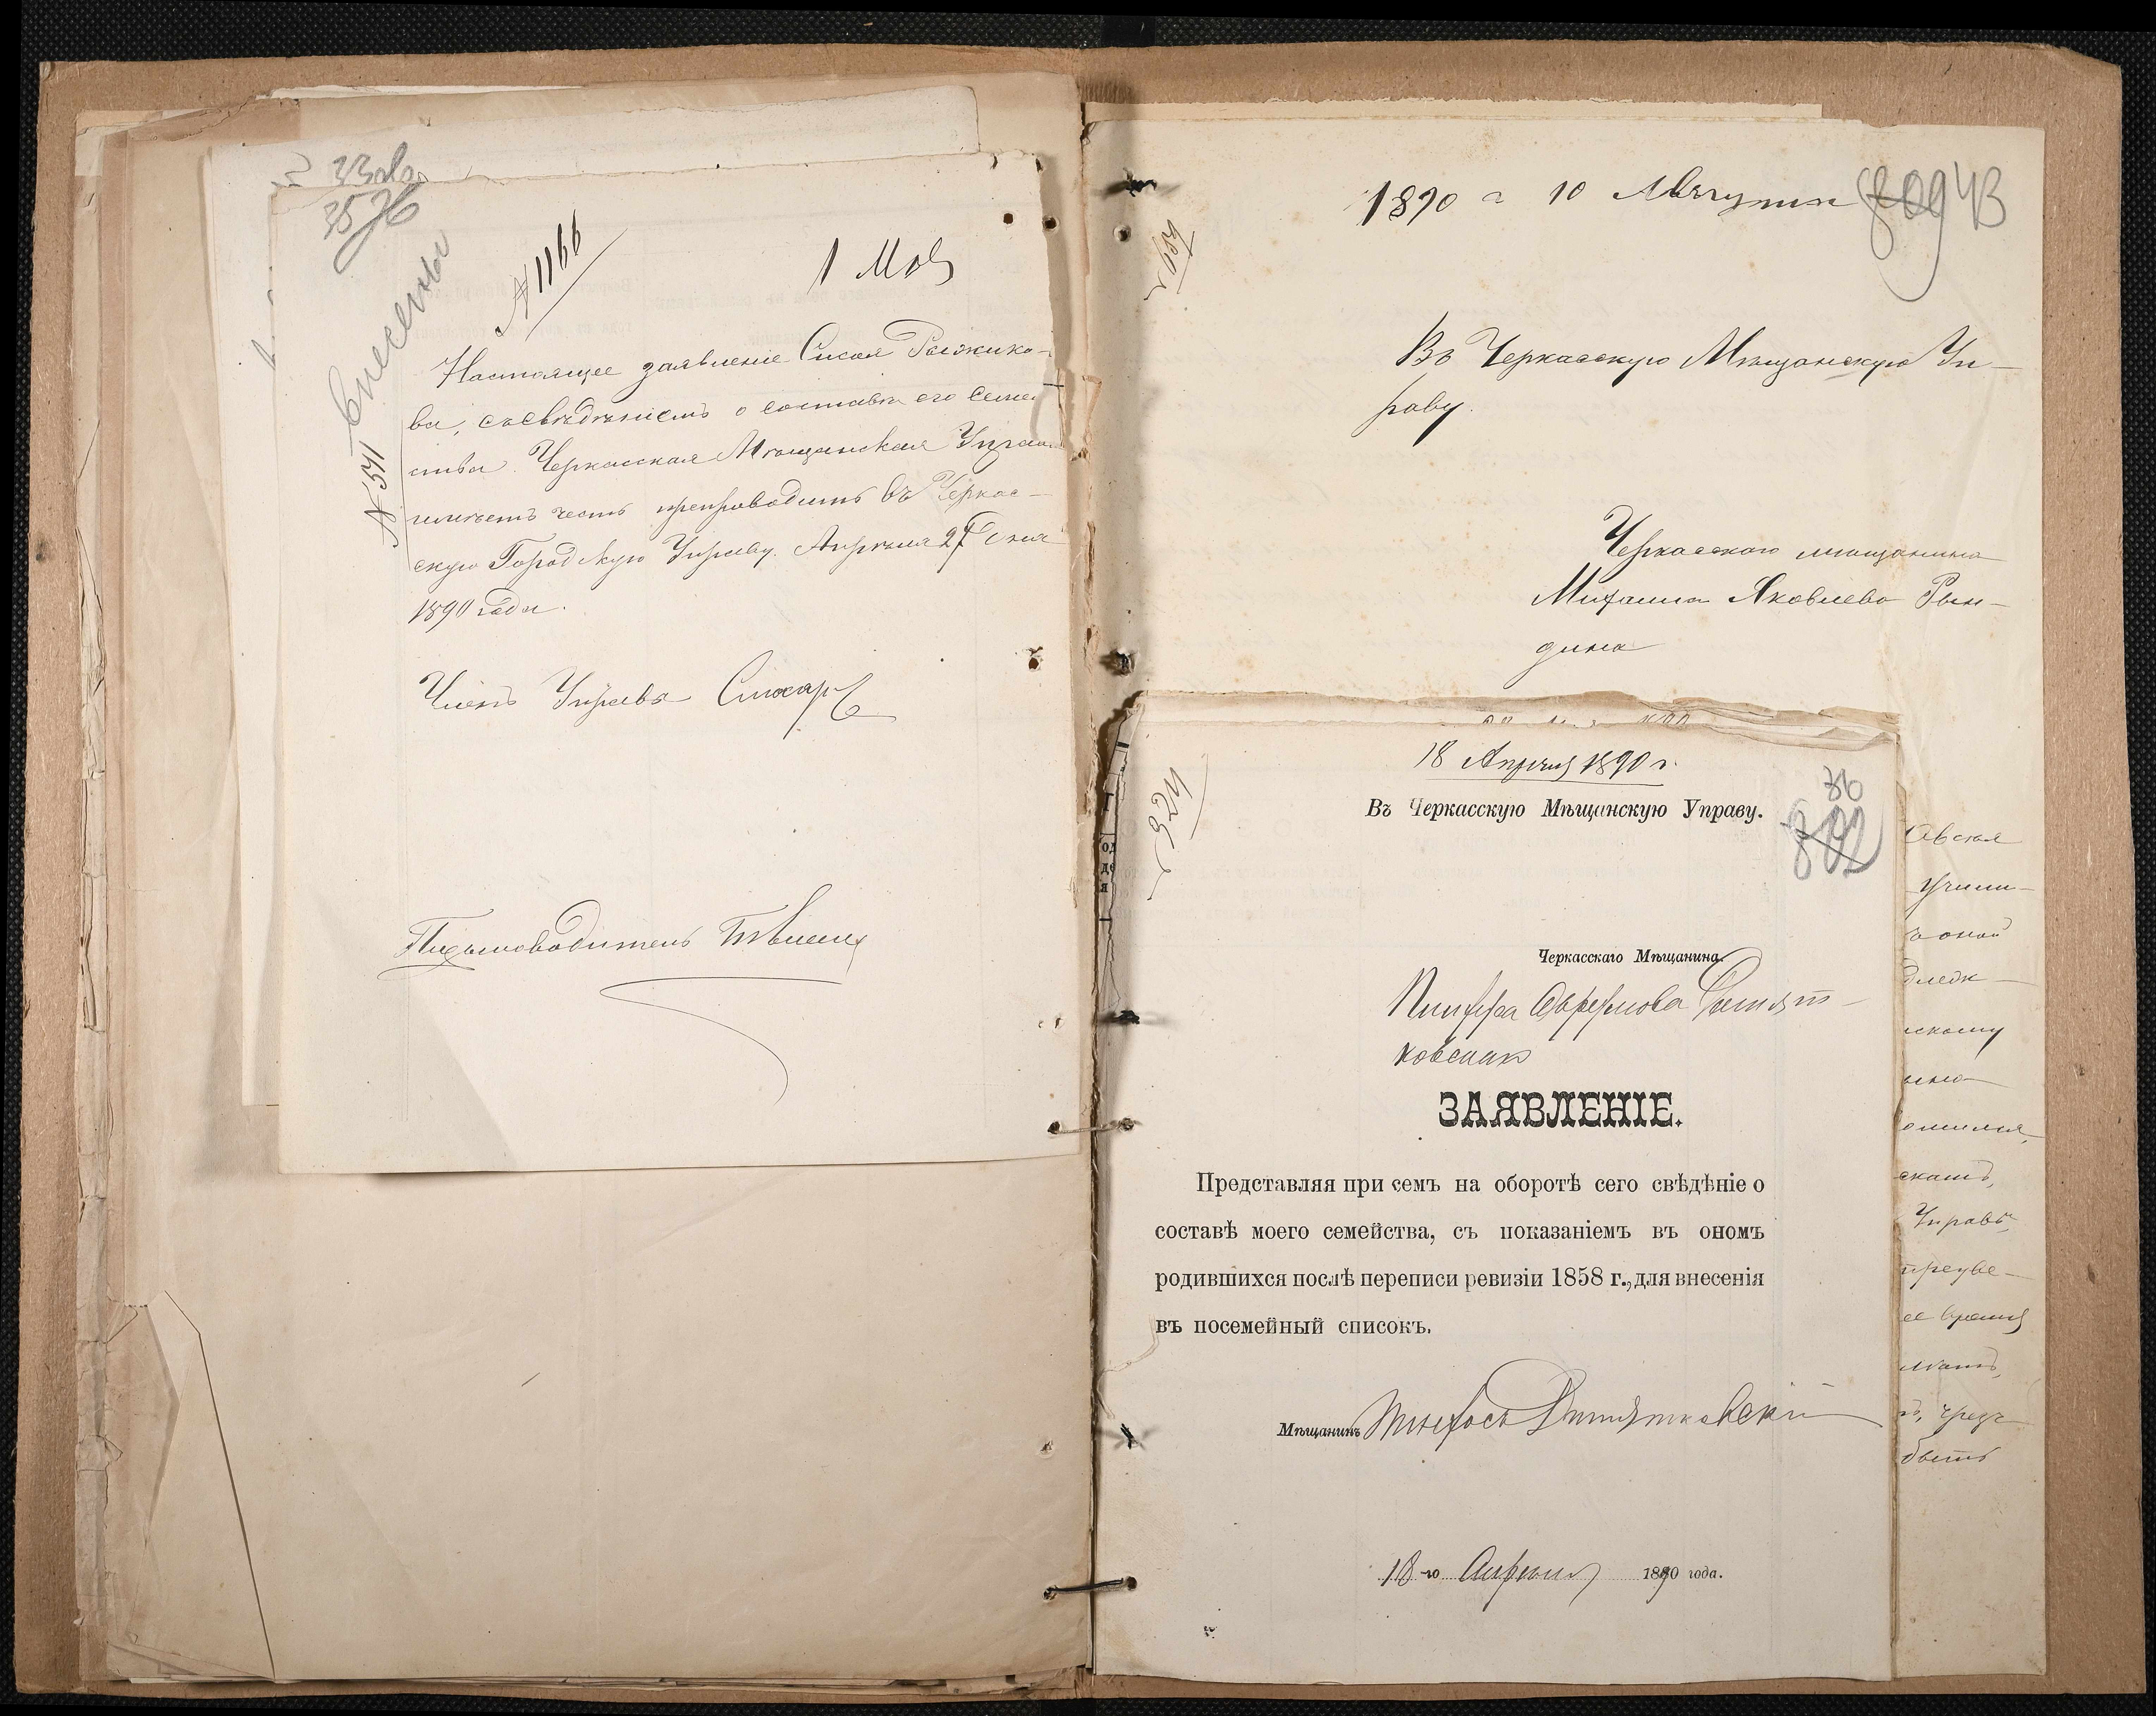 33 об
35
36
внесены
№ 1166
1 Мая
№ 541
Настоящее заявление Сысоя Рыжико-
ва, съ сведениемъ о составе его семей
ства Черкасская Мѣщанская Управа
имѣетъ честь препроводить въ Черкас-
скую Городскую Управу. Апрѣля 27 дня
1890 года.
Членъ Управы
Письмоводитель
1890 г 10 Августа
809 43
№ 659
Въ Черкасскую Мѣщанскую Уп-
раву.
Черкасского мещанина
Михаила Яковлева Рын-
дина
18 Апреля 1890 г.
36
802
№ 324
Въ Черкасскую Мѣщанскую Управу.
Черкасскаго Мѣщанина
ковскаго
ЗАЯВЛЕНІЕ.
Представляя при семъ на оборотѣ сего свѣдѣніе о
составѣ моего семейства, съ показаніемъ въ ономъ
родившихся послѣ переписи ревизіи 1858 г., для внесенія
въ посемейный списокъ.
Мѣщанинъ
18-го Апреля 1890 года.
учили-
оной
скому
скать,
Управы
ее время
чрезъ
быть